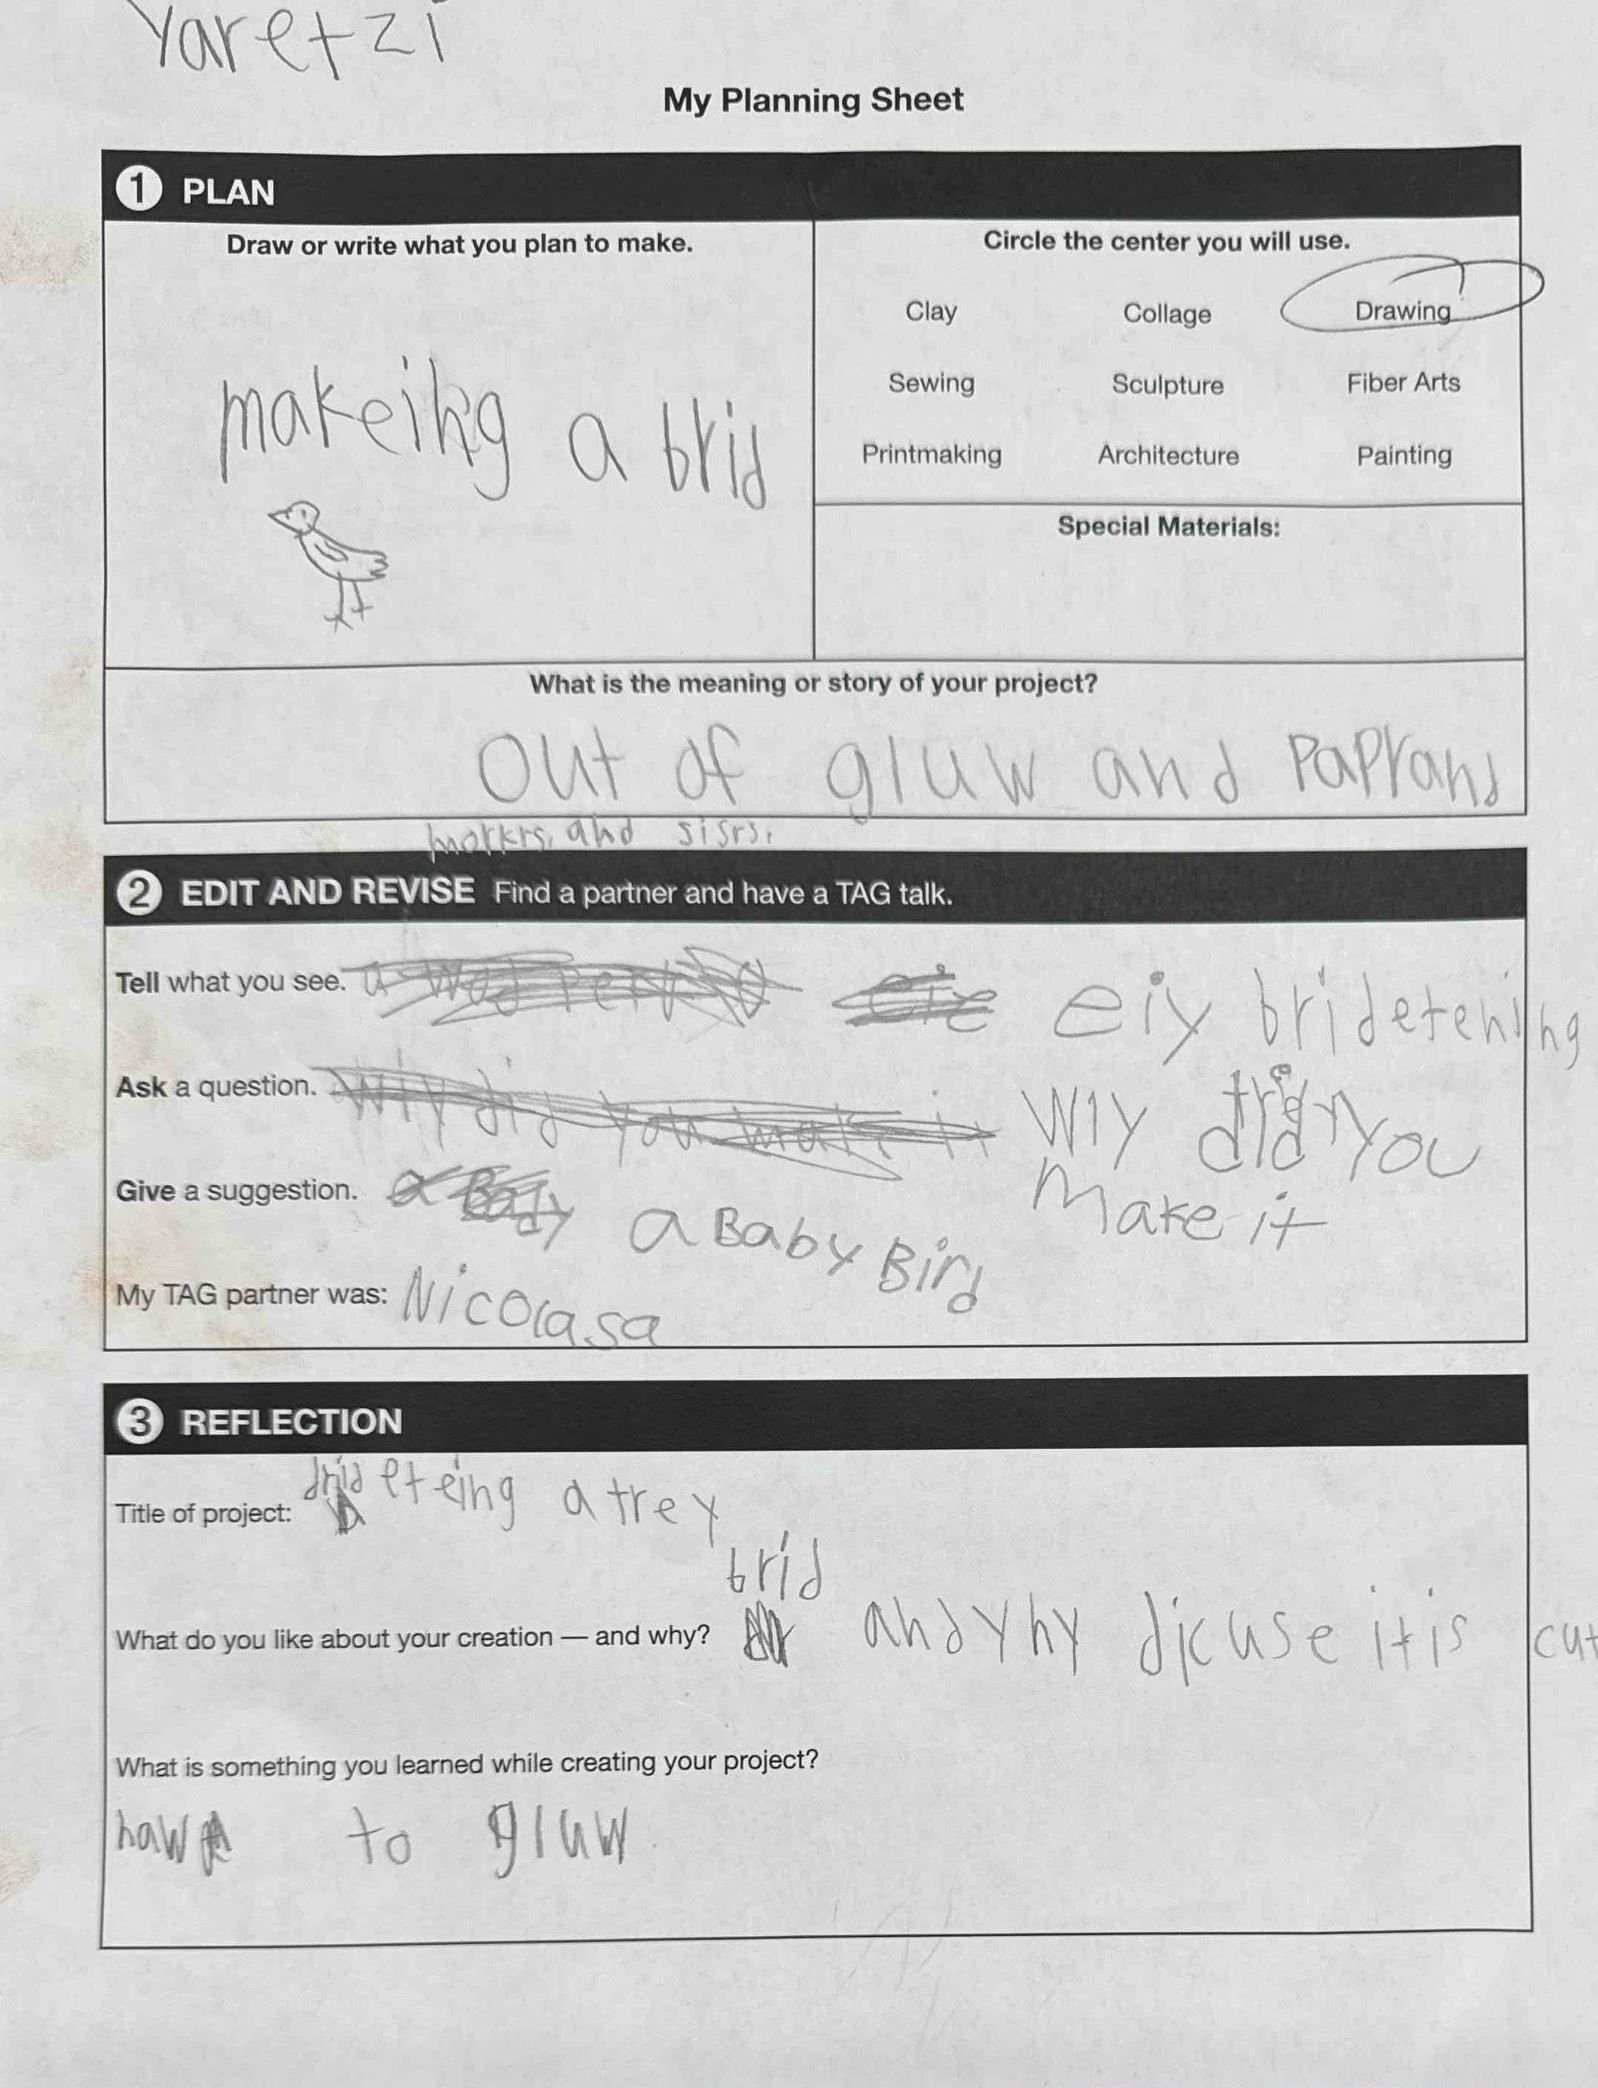 Yaretzi
My Planning Sheet
1 PLAN
Draw or write what you plan to make.
makeihg a brid
Circle the center you will use.
Clay Collage Drawing
Sewing Sculpture Fiber Arts
Printmaking Architecture Painting
Special Materials:
What is the meaning or story of your project?
out of gluw and Paprand
morkrs, and sisrs.
2 EDIT AND REVISE Find a partner and have a TAG talk.
Tell what you see. eiy bridetening
Ask a question. Wiy did you
Make it
Give a suggestion. a Baby Bird
My TAG partner was: Nicolasa
3 REFLECTION
Title of project: eteing a trey
brid
What do you like about your creation — and why? and yhy dicuse it is cut
What is something you learned while creating your project?
haw to gluw